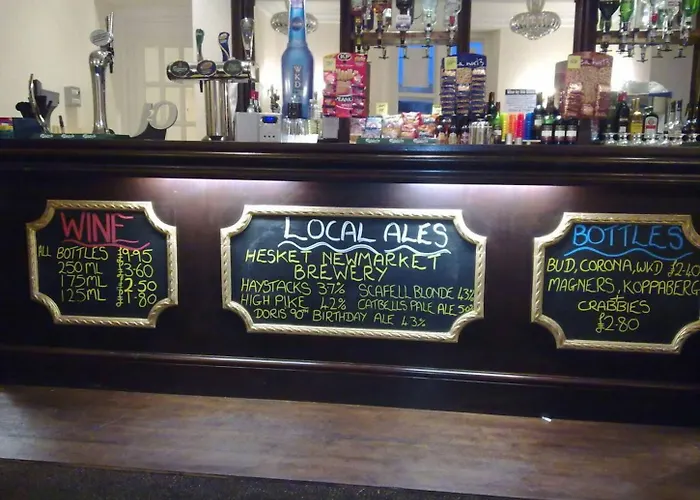 WKD
WINE
ALL BOTTLES £9.95
250ML 3.60
175ML 2.50
125ML 1.80
LOCAL ALES
HESKET NEWMARKET
BREWERY
HAYSTACKS 3.7% SCAFELL BLONDE 4.3%
HIGH PIKE 4.2% CATBELLS PALE ALE
DORIS 90TH BIRTHDAY ALE 4.3%
BOTTLES
BUD, CORONA, WKD
MAGNERS, KOPPABERG
+
CRABBIES
£2.80